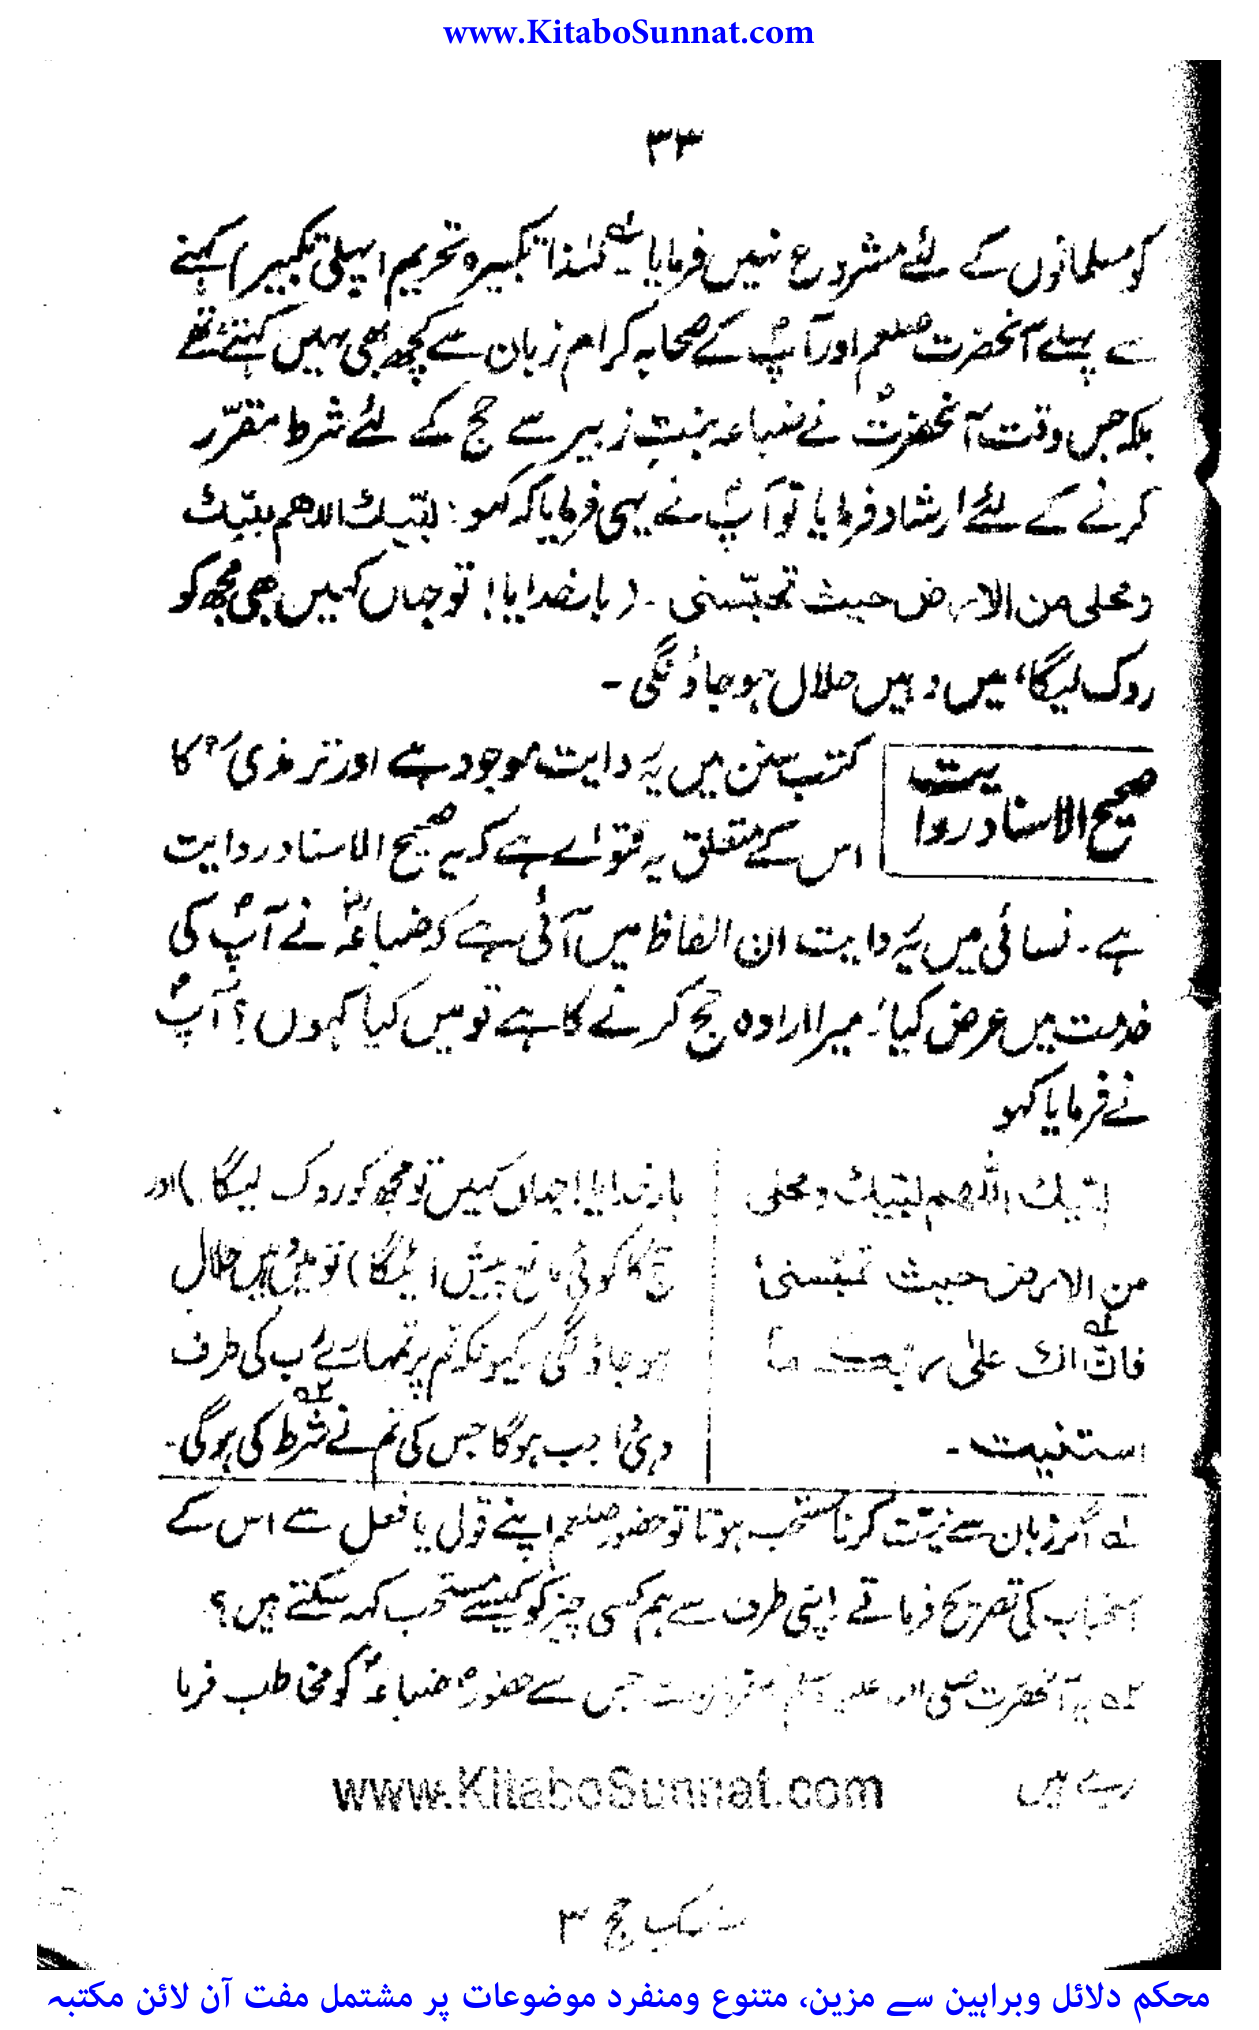 www.KitaboSunnat.com
۳۳
کو مسلمانوں کے لئے مشروع نہیں فرمایا لہٰذا تکبیر و تحریم (پہلی تکبیر) کہنے
سے پہلے آنحضرت صلعم اور آپؐ کے صحابہ کرام زبان سے کچھ بھی نہیں کہتے تھے
بلکہ جس وقت آنحضرتؐ نے ضباعہ بنت زبیر سے حج کے لئے شرط مقرّر
کرنے کے لئے ارشاد فرمایا تو آپؐ نے یہی فرمایا کہ کہو: لبّیک اللھم لبّیک
ومحلی من الارض حیث تحبّسنی ۔ (بار خدایا! تو جہاں کہیں بھی مجھ کو
روک لیگا، میں وہیں حلال ہو جاؤنگی ۔
صحیح الاسناد روایت
کتب سنن میں یہ روایت موجود ہے اور ترمذیؒ کا
اس کے متعلق یہ فتواے ہے کہ یہ صحیح الاسناد روایت
ہے ۔ نسائی میں یہ روایت ان الفاظ میں آئی ہے کہ ضباعہؓ نے آپؐ کی
خدمت میں عرض کیا: میرا ارادہ حج کرنے کا ہے تو میں کیا کہوں؟ آپؐ
نے فرمایا کہو
لبّیک اللّٰھم لبّیک ومحلی
من الارض حیث تحبّسنی
فان لک علیٰ ربّک ما
استثنیت ۔
بار خدایا! جہاں کہیں تو مجھ کو روک لیگا (اور
حج کا کوئی مانع پیش آئیگا) تو میں وہیں حلال
ہو جاؤنگی کیونکہ تم پر تمہارے رب کی طرف
وہی واجب ہوگا جس کی تم نے شرط کی ہوگی ۔
۱ اگر زبان سے نیت کرنا مستحب ہوتا تو حضور صلعم اپنے قول یا فعل سے اس کے
استحباب کی تصریح فرماتے اپنی طرف سے ہم کسی چیز کو کیسے مستحب کہہ سکتے ہیں؟
۲ یہ آنحضرت صلی اللہ علیہ وسلم جس سے حضورؐ ضباعہؓ کو مخاطب فرما
رہے ہیں
www.KitaboSunnat.com
مناسک حج ۳
محکم دلائل وبراہین سے مزین، متنوع ومنفرد موضوعات پر مشتمل مفت آن لائن مکتبہ